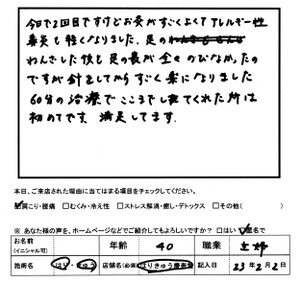 今日で2回目ですけどお灸がすごくよくてアレルギー性
鼻炎も軽くなりました。足の
ねんざした後も足の長が全々のびなかったの
ですが針をしてからすごく楽になりました
60分の治療でここまでして来てくれた所は
初めてです 満足してます。
本日、ご来店された理由に当てはまる項目をチェックしてください。
☑肩こり・腰痛 □むくみ・冷え性 □ストレス解消・癒し・デトックス □その他( )
※ あなた様の声を、ホームページなどでご紹介してもよろしいですか? □はい ☑匿名で
お名前
(イニシャル可)
年齢 40 職業 主婦
施術名 はり・きゅう 店舗名(必須) はりきゅう 記入日 23年2月2日